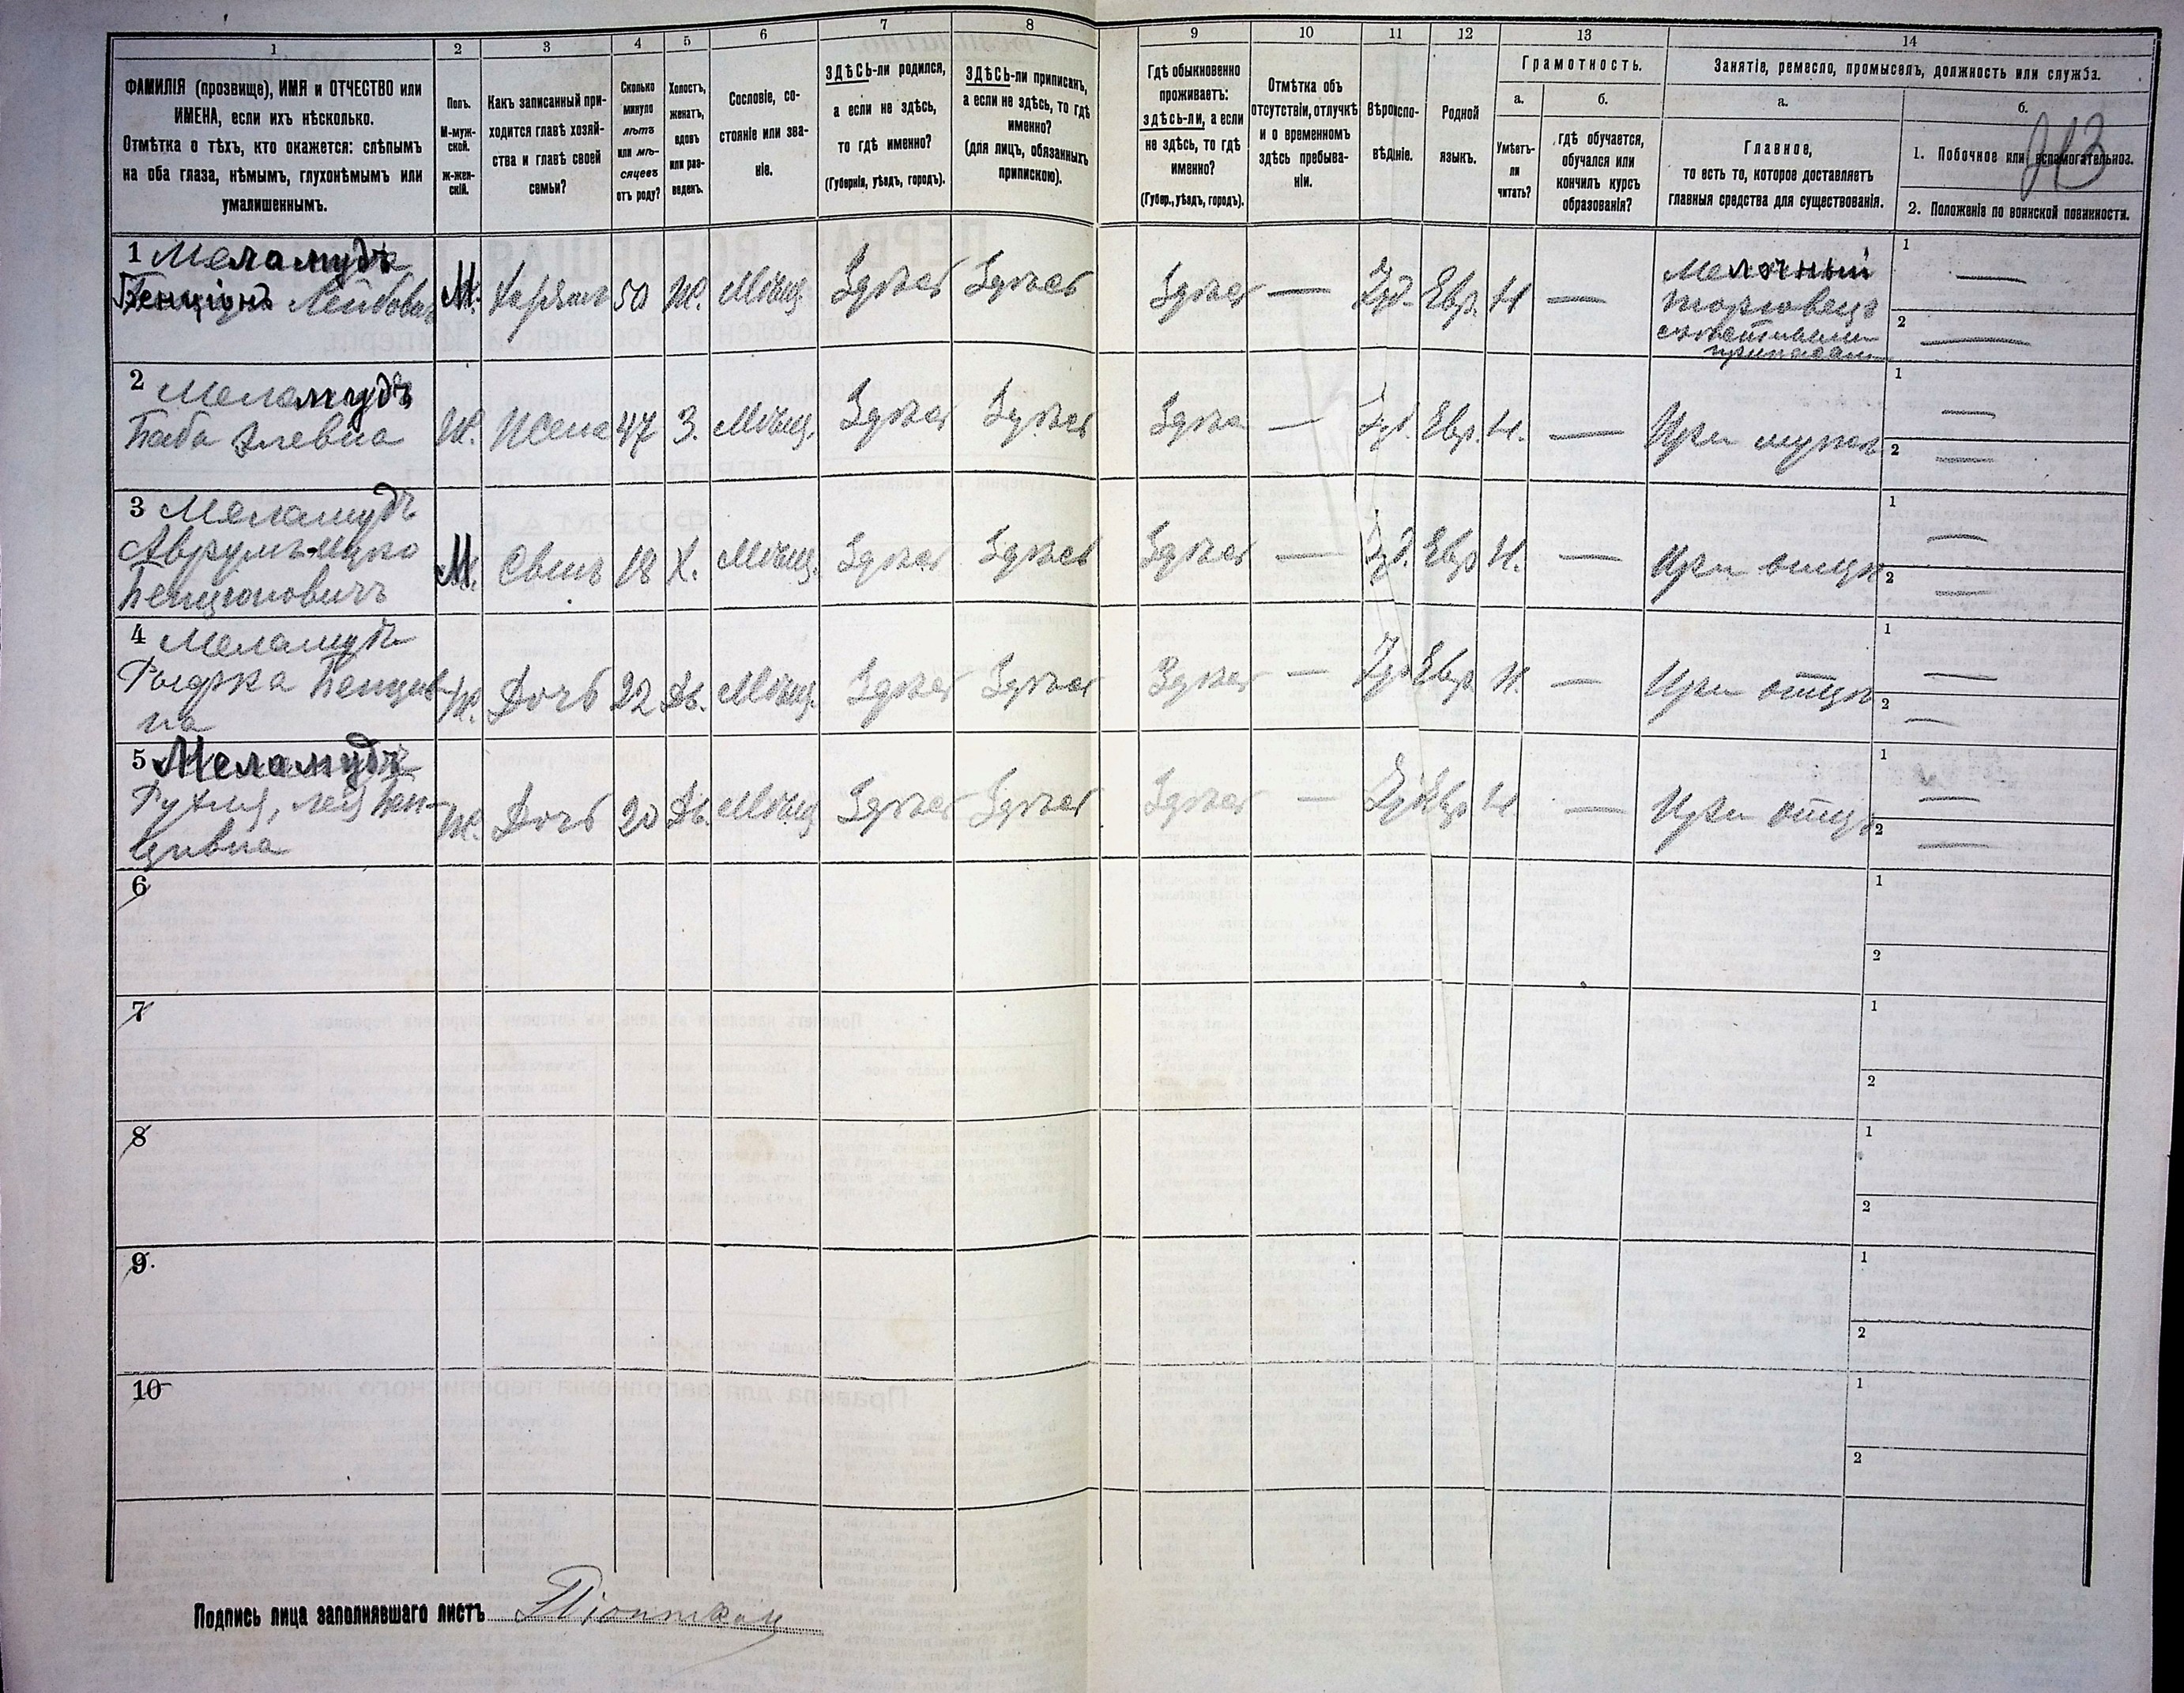 1
2
3
4
5
6
7
8
9
10
11
12
13
14
ФАМИЛІЯ (прозвище), ИМЯ и ОТЧЕСТВО или
ИМЕНА, если ихъ нѣсколько.
Отмѣтка о тѣхъ, кто окажется: слѣпымъ
на оба глаза, нѣмымъ, глухонѣмымъ или
умалишеннымъ.
Полъ.
М-муж-
ской.
ж-жен-
скій.
Какъ записанный при-
ходится главѣ хозяй-
ства и главѣ своей
семьи?
Сколько
минуло
лѣтъ
или мѣ-
сяцевъ
отъ роду?
Холостъ,
женатъ,
вдовъ
или раз-
веденъ.
Сословіе, со-
стояніе или зва-
ніе.
ЗДѢСЬ-ли родился,
а если не здѣсь,
то гдѣ именно?
(Губернія, уѣздъ, городъ).
ЗДѢСЬ-ли приписанъ,
а если не здѣсь, то гдѣ
именно?
(для лицъ, обязанныхъ
припискою).
Гдѣ обыкновенно
проживаетъ:
здѣсь-ли, а если
не здѣсь, то гдѣ
именно?
(Губер., уѣздъ, городъ).
Отмѣтка объ
отсутствіи, отлучкѣ
и о временномъ
здѣсь пребыва-
ніи.
Вѣроиспо-
вѣданіе.
Родной
языкъ.
Грамотность.
а.
Умѣетъ-
ли
читать?
б.
гдѣ обучается,
обучался или
кончилъ курсъ
образованія?
Занятіе, ремесло, промыселъ, должность или служба.
а.
Главное,
то есть то, которое доставляетъ
главныя средства для существованія.
б.
1. Побочное или вспомогательное.
2. Положеніе по воинской повинности.
213
1 Меламудъ
Бенціонъ Лейбовъ М. Хозяинъ 50 Ж. Мѣщ. Здѣсь Здѣсь Здѣсь — Іуд. Евр. Н — Мелочный
торговецъ
съѣстными
припасами
1 —
2 —
2 Меламудъ
Баба Элевна Ж. Жена 47 З. Мѣщ. Здѣсь Здѣсь Здѣсь — Іуд. Евр. Н. — При мужѣ
1 —
2 —
3 Меламудъ
Аврумъ-Ицко
Бенціоновичъ М. Сынъ 18 Х. Мѣщ. Здѣсь Здѣсь Здѣсь — Іуд. Евр. Н. — При отцѣ
1 —
2 —
4 Меламудъ
на Ж. Дочь 22 Дв. Мѣщ. Здѣсь Здѣсь Здѣсь — Іуд. Евр. Н. — При отцѣ
1 —
2 —
5 Меламудъ
Рухля, Лея Бен-
ціовна Ж. Дочь 20 Дв. Мѣщ. Здѣсь Здѣсь Здѣсь — Іуд. Евр. Н. — При отцѣ
1 —
2 —
6
1
2
7
1
2
8
1
2
9.
1
2
10
1
2
Подпись лица заполнявшаго листъ